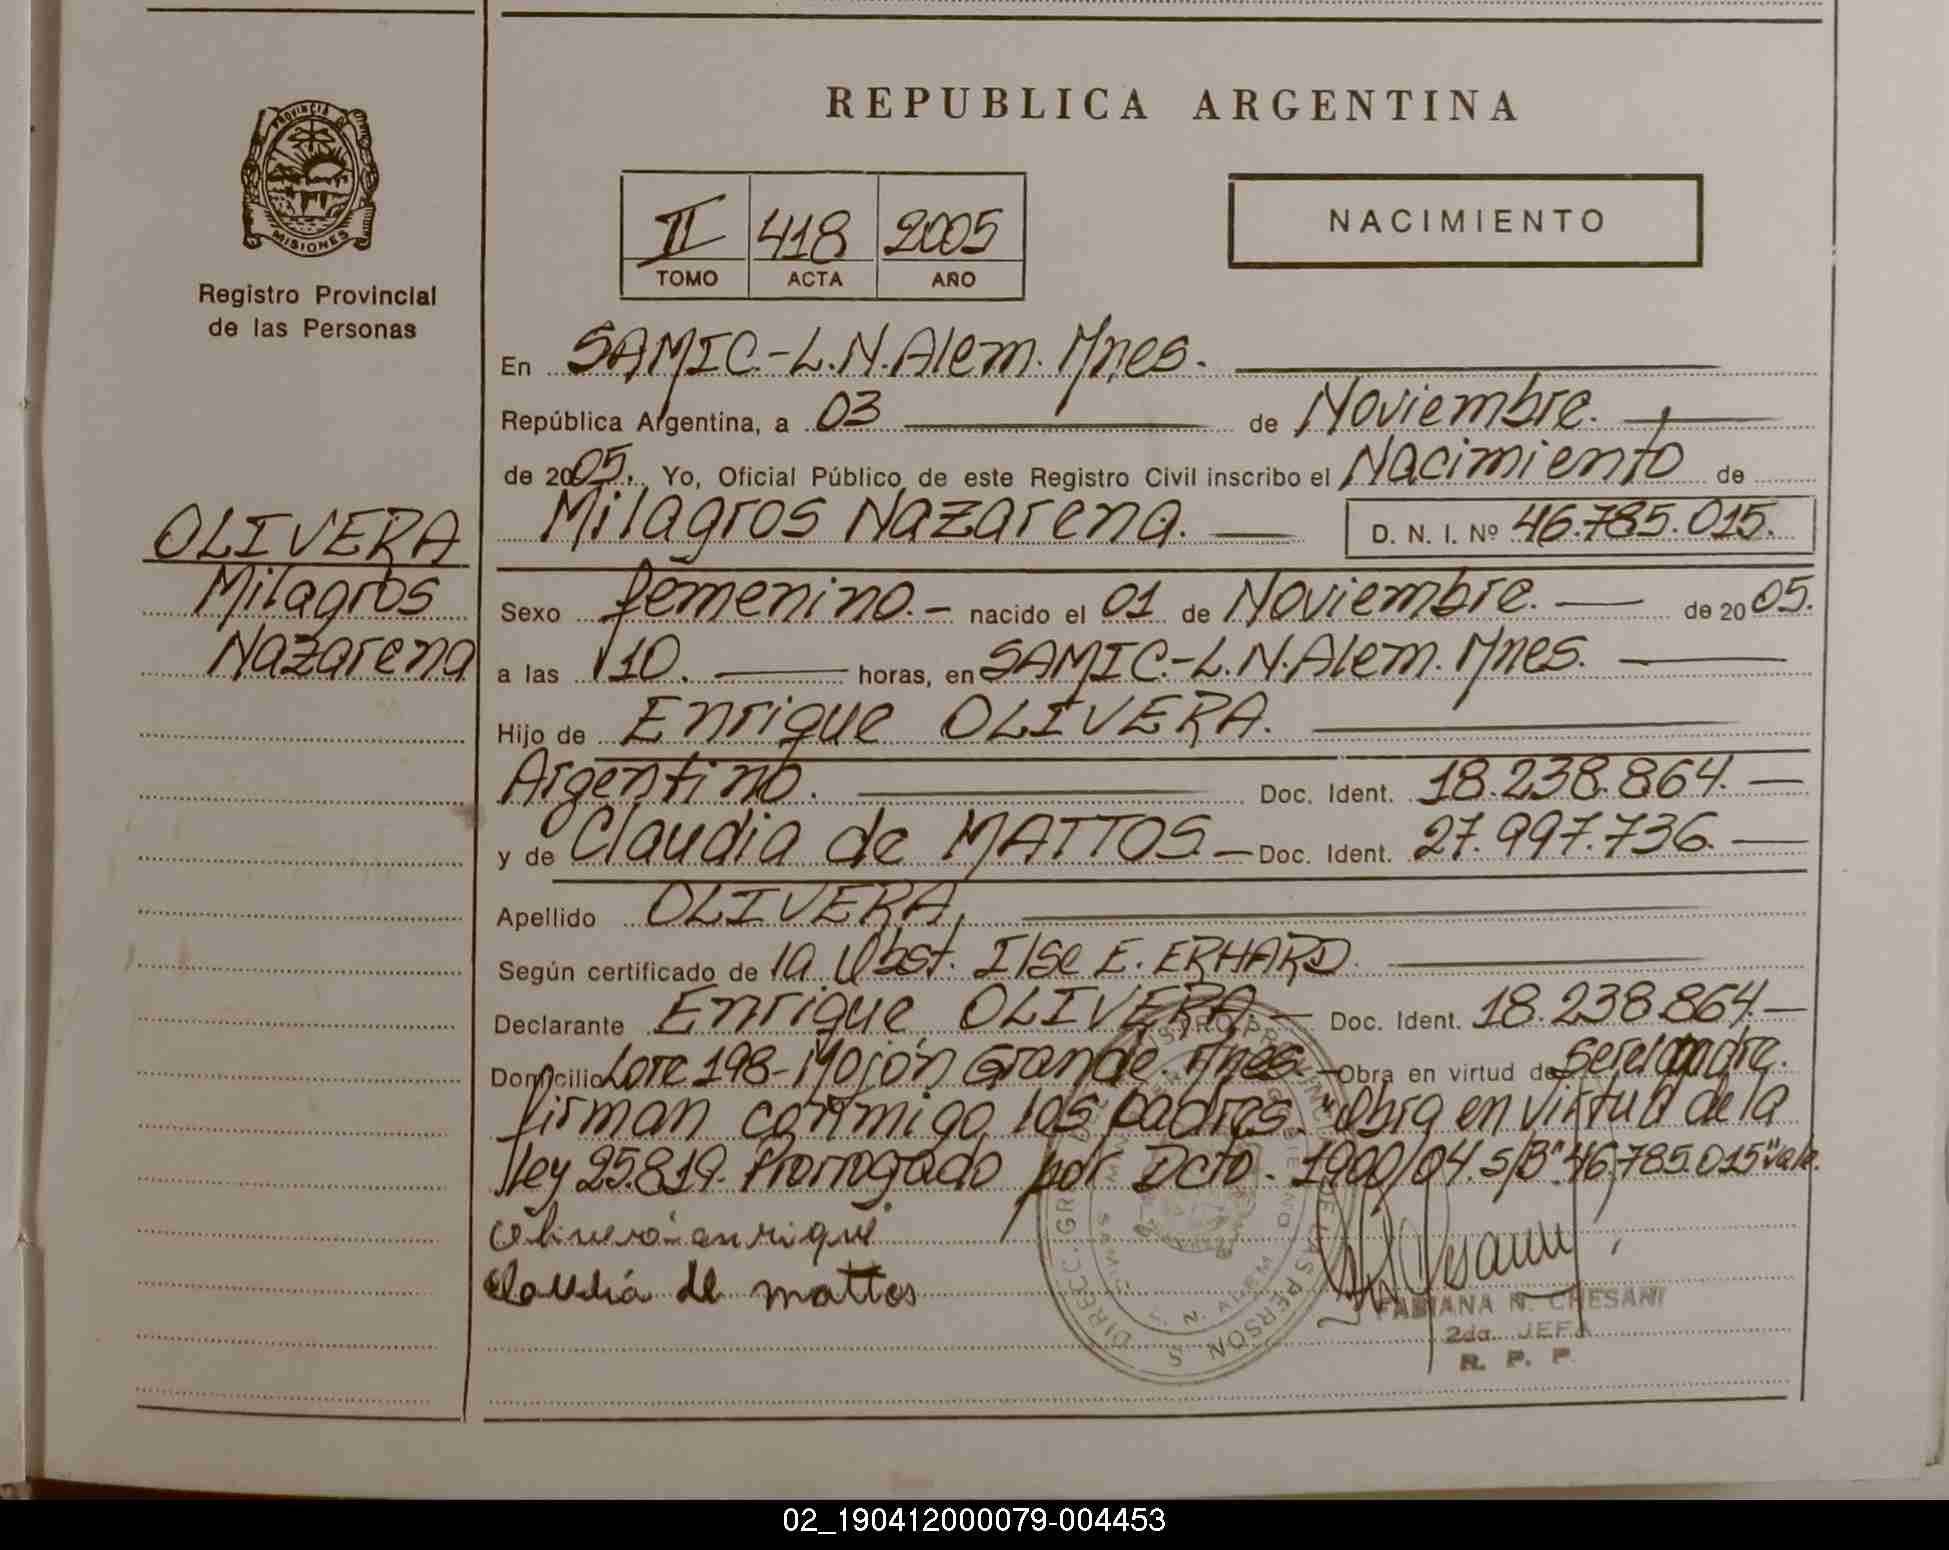 REPUBLICA ARGENTINA
PROVINCIA DE
MISIONES
Registro Provincial
de las Personas
II 418 2005
TOMO ACTA AÑO
NACIMIENTO
OLIVERA
Milagros
Nazarena
En SAMIC.-L.N.Alem. Mnes.
República Argentina, a 03 de Noviembre.
de 2005. Yo, Oficial Público de este Registro Civil inscribo el Nacimiento de
Milagros Nazarena. D. N. I. Nº 46.785.015.
Sexo femenino.- nacido el 01 de Noviembre. de 2005.
a las 110. horas, en SAMIC.-L.N.Alem. Mnes.
Hijo de Enrique OLIVERA.
Argentino. Doc. Ident. 18.238.864.
y de Claudia de MATTOS Doc. Ident. 27.997.736.
Apellido OLIVERA,
Según certificado de la Obst. Ilse E. ERHARD.
Declarante Enrique OLIVERA. Doc. Ident. 18.238.864.
Domicilio Lote 198-Mojón Grande. Mnes. Obra en virtud de ser el padre.
firman conmigo los padres. "Obra en virtud de la
ley 25.819. Prorrogado por Dcto. 1900/04. s/B" 46.785.015 "vale.
olivera enrique
Claudia de mattos
FABIANA N. CHESANI
2da. JEFA
R. P. P.
02_190412000079-004453